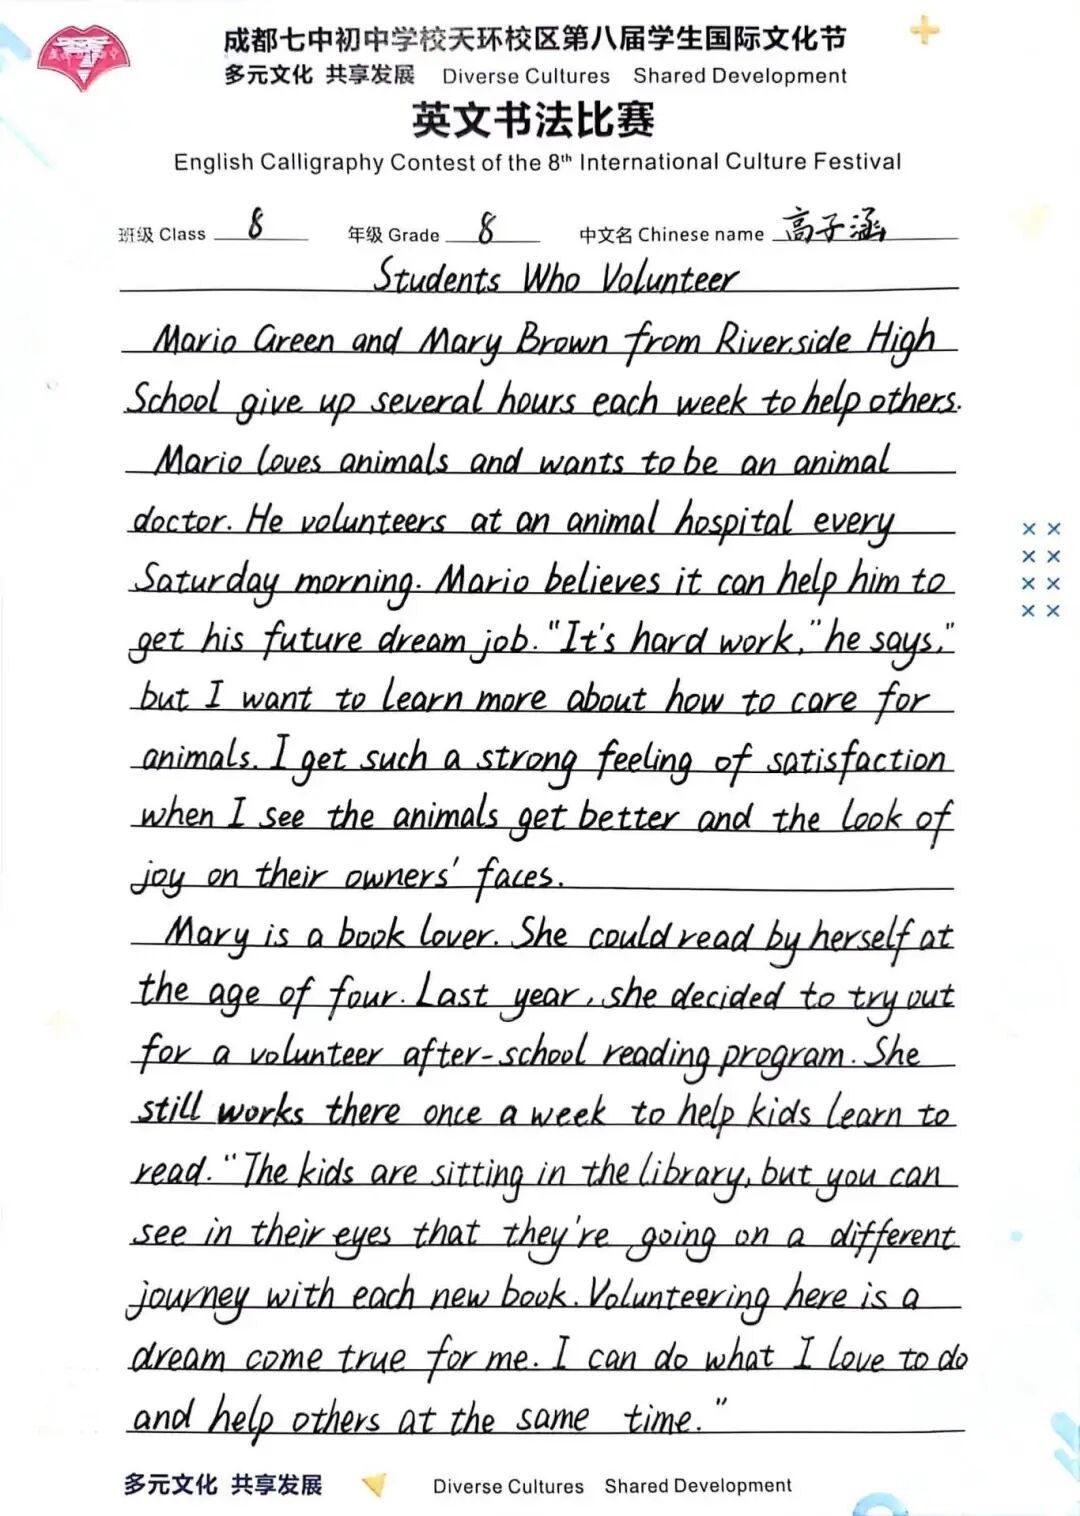 成都七中初中学校天环校区第八届学生国际文化节
多元文化 共享发展 Diverse Cultures Shared Development
英文书法比赛
English Calligraphy Contest of the 8th International Culture Festival
班级 Class 8 年级 Grade 8 中文名 Chinese name 高子涵
Students Who Volunteer
Mario Green and Mary Brown from Riverside High
School give up several hours each week to help others.
Mario loves animals and wants to be an animal
doctor. He volunteers at an animal hospital every
Saturday morning. Mario believes it can help him to
get his future dream job. "It's hard work," he says,"
but I want to learn more about how to care for
animals. I get such a strong feeling of satisfaction
when I see the animals get better and the look of
joy on their owners' faces.
Mary is a book lover. She could read by herself at
the age of four. Last year, she decided to try out
for a volunteer after-school reading program. She
still works there once a week to help kids learn to
read. "The kids are sitting in the library, but you can
see in their eyes that they're going on a different
journey with each new book. Volunteering here is a
dream come true for me. I can do what I love to do
and help others at the same time."
多元文化 共享发展 Diverse Cultures Shared Development